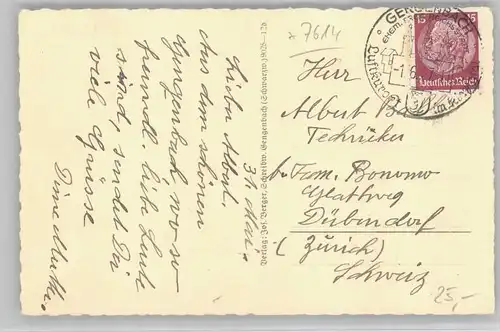 x 7614
31. Mai.
Lieber Albert,
Aus dem schönen
Gengenbach wo so
freundl. liebe Leute
sind, sendet Dir
viele Grüsse
Deine Mutti.
Verlag: Jos. Berger, Schreibw. Gengenbach (Schwarzw.)
GENGENBACH
EHEM.
Luftkur
15
15
Deutsches Reich
Herr
Albert
Techniker
b. Fam. Bonomo
Glattweg
Dübendorf
(Zürich)
Schweiz
25,-